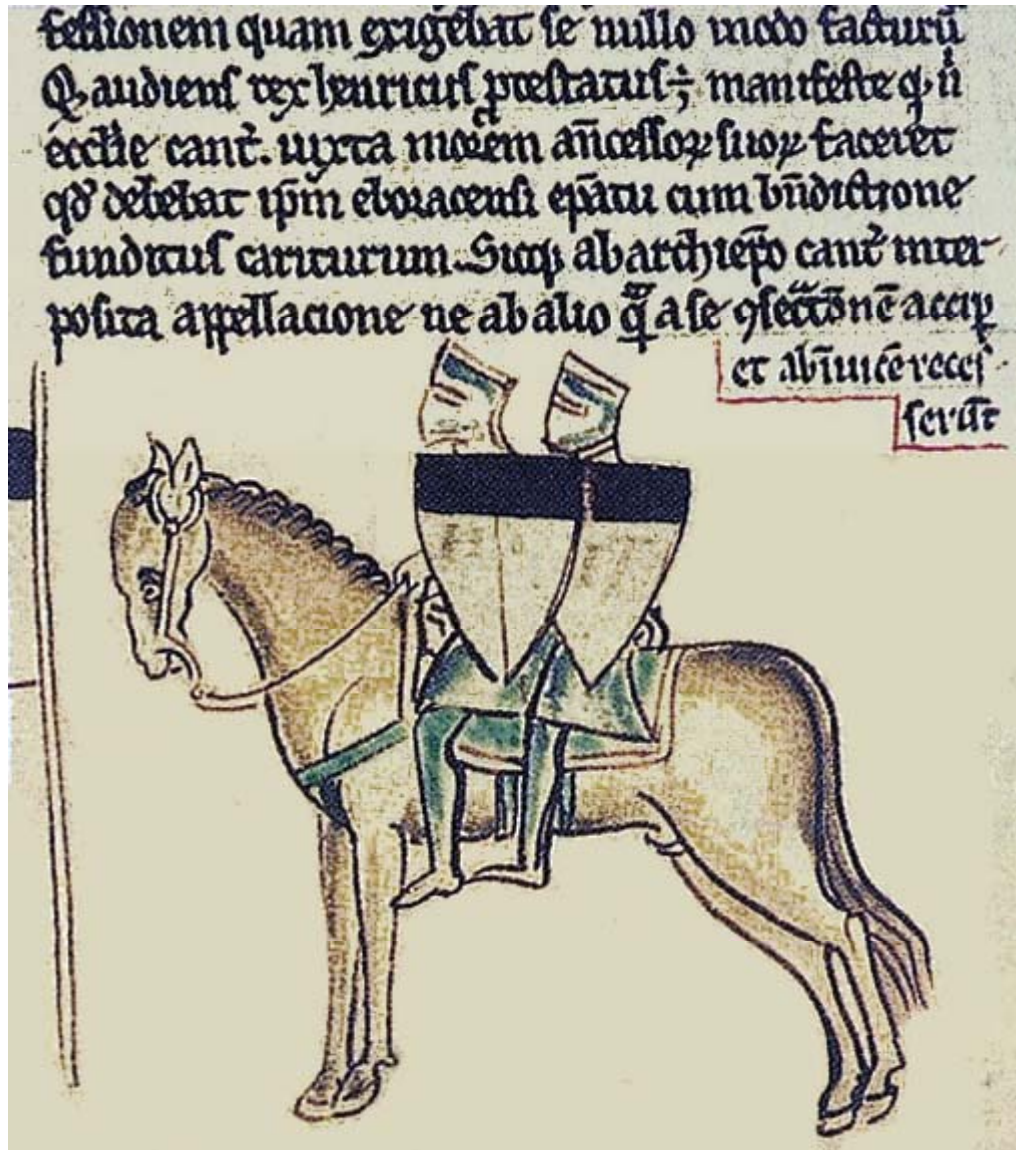 fessionem quam exigebat se nullo modo facturū
Q, audiens rex henricus ꝓtestatus; manifeste q, ñ
ecclie cant̃. iuxta morem añcessoꝝ suoꝝ faceret
qd̕ debebat ip̄m eboracensi ep̄atu cum bñdictione
funditus cariturum. Sicq; ab archiep̄o cant̃ inter
posita appellacione ne ab alio q̄ a se ꝯsec̃tōnē accip̄
et abīuicē recef
serūt